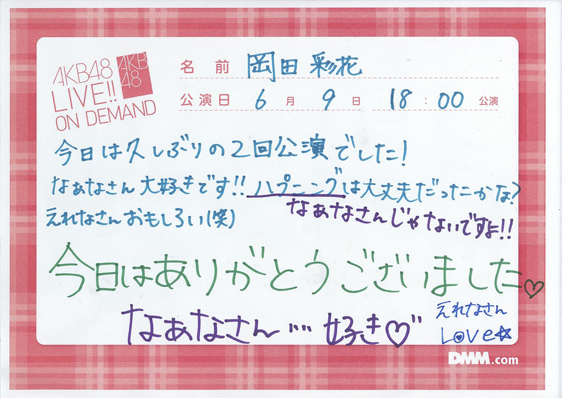 AKB48
LIVE!!
ON DEMAND
AKB
48
名前 岡田彩花
公演日 6月9日 18:00 公演
今日は久しぶりの2回公演でした!
なぁなさん大好きです!! ハプニングは大丈夫だったかな?
えれなさんおもしろい(笑) なぁなさんじゃないですよ!!
今日はありがとうございました♡
なぁなさん…好き♡
えれなさん
Love☆
DMM.com